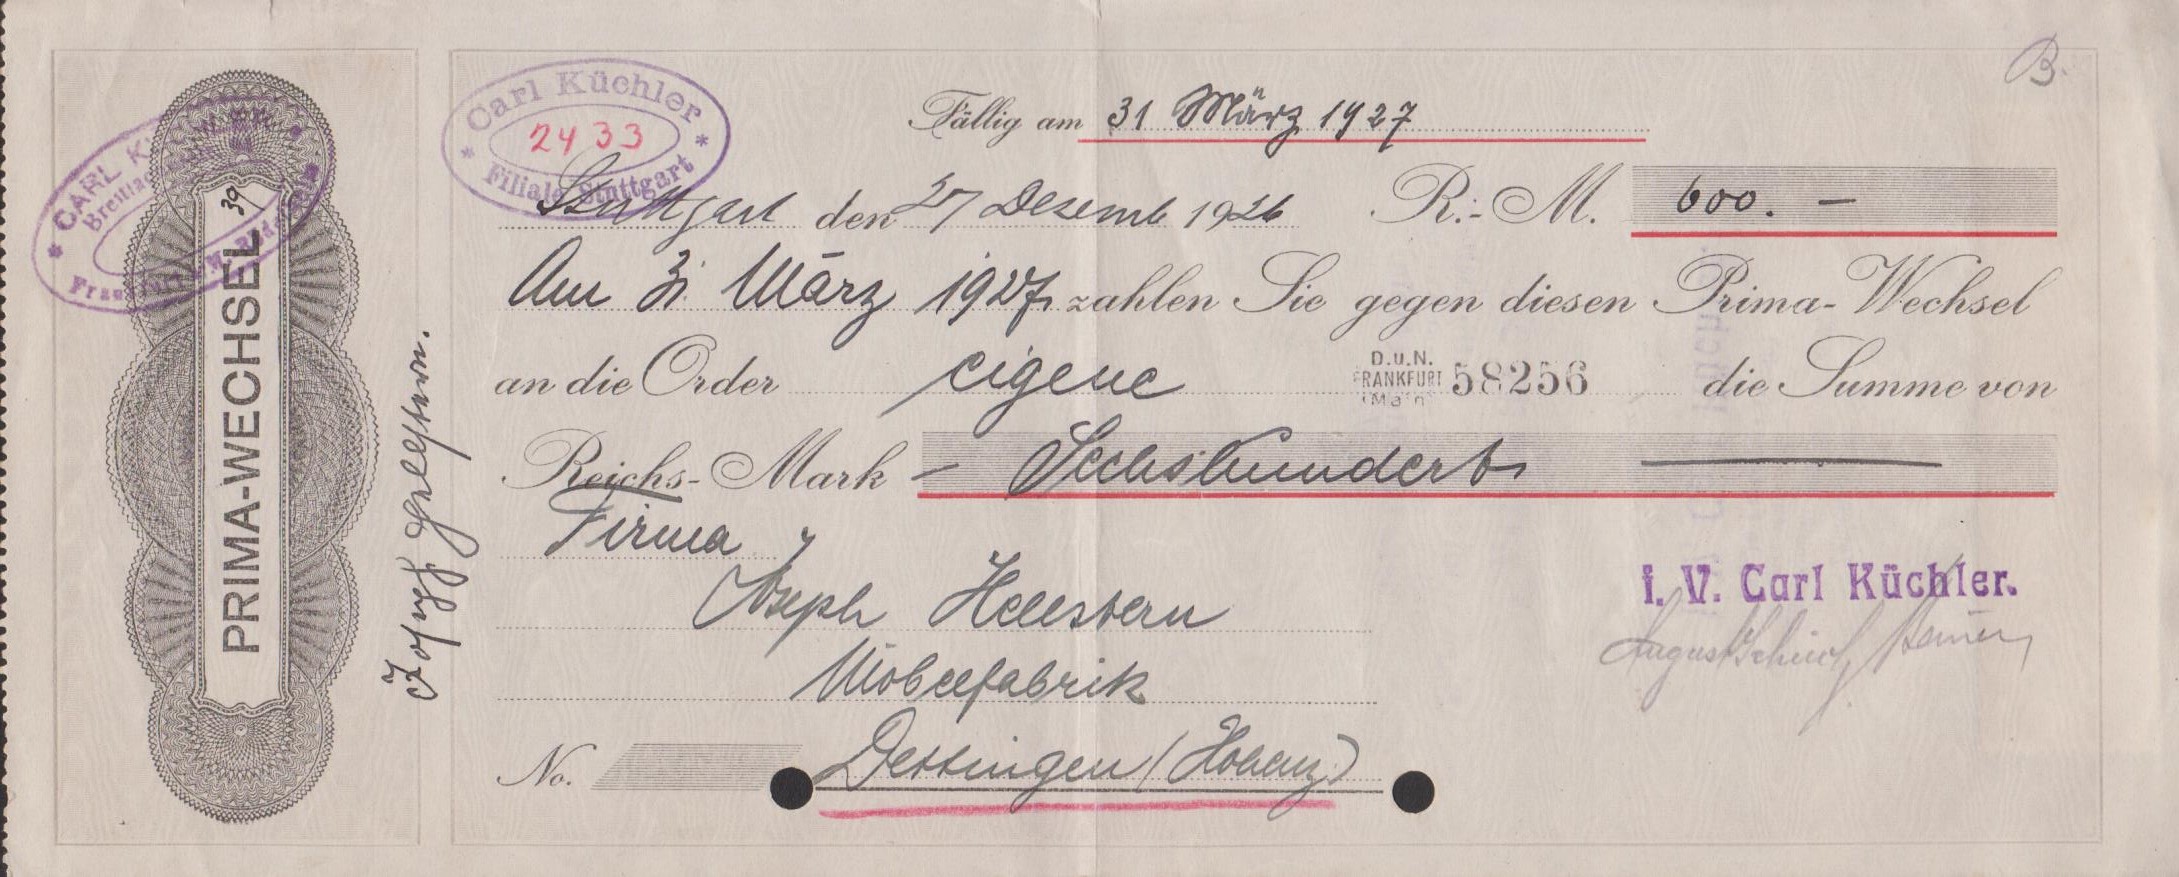 B.
Carl Küchler
2433
Filiale Stuttgart
Fällig am 31 März 1927
Stuttgart den 27 Dezemb 1926 R.-M. 600.—
Am 31. März 1927 zahlen Sie gegen diesen Prima-Wechsel
an die Order eigene D.u.N. FRANKFURT (Main) 58256 die Summe von
Reichs-Mark — Sechshundert —
Firma
Joseph Hellstern
Möbelfabrik
No. Dettingen (Hohenz)
i. V. Carl Küchler.
PRIMA-WECHSEL
39
Joseph Hellstern.
CARL